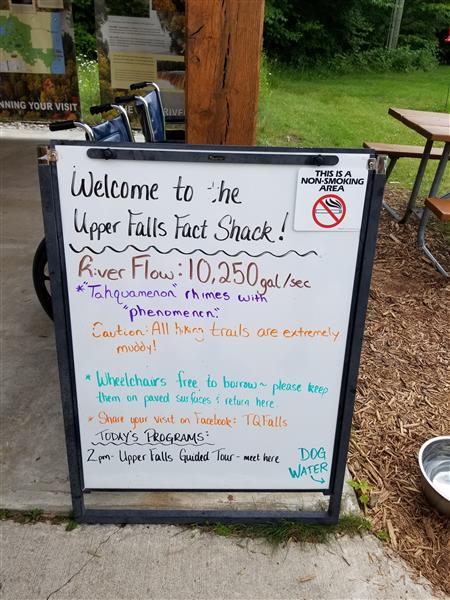 NNING YOUR VISIT
RIVER
THIS IS A
NON-SMOKING
AREA
Welcome to the
Upper Falls Fact Shack!
River Flow: 10,250 gal/sec
* "Tahquamenon" rhymes with
"phenomenon."
Caution: All hiking trails are extremely
muddy!
* Wheelchairs free to borrow ~ please keep
them on paved surfaces & return here.
* Share your visit on Facebook: TQFalls
TODAY'S PROGRAMS:
2pm - Upper Falls Guided Tour - meet here
DOG
WATER